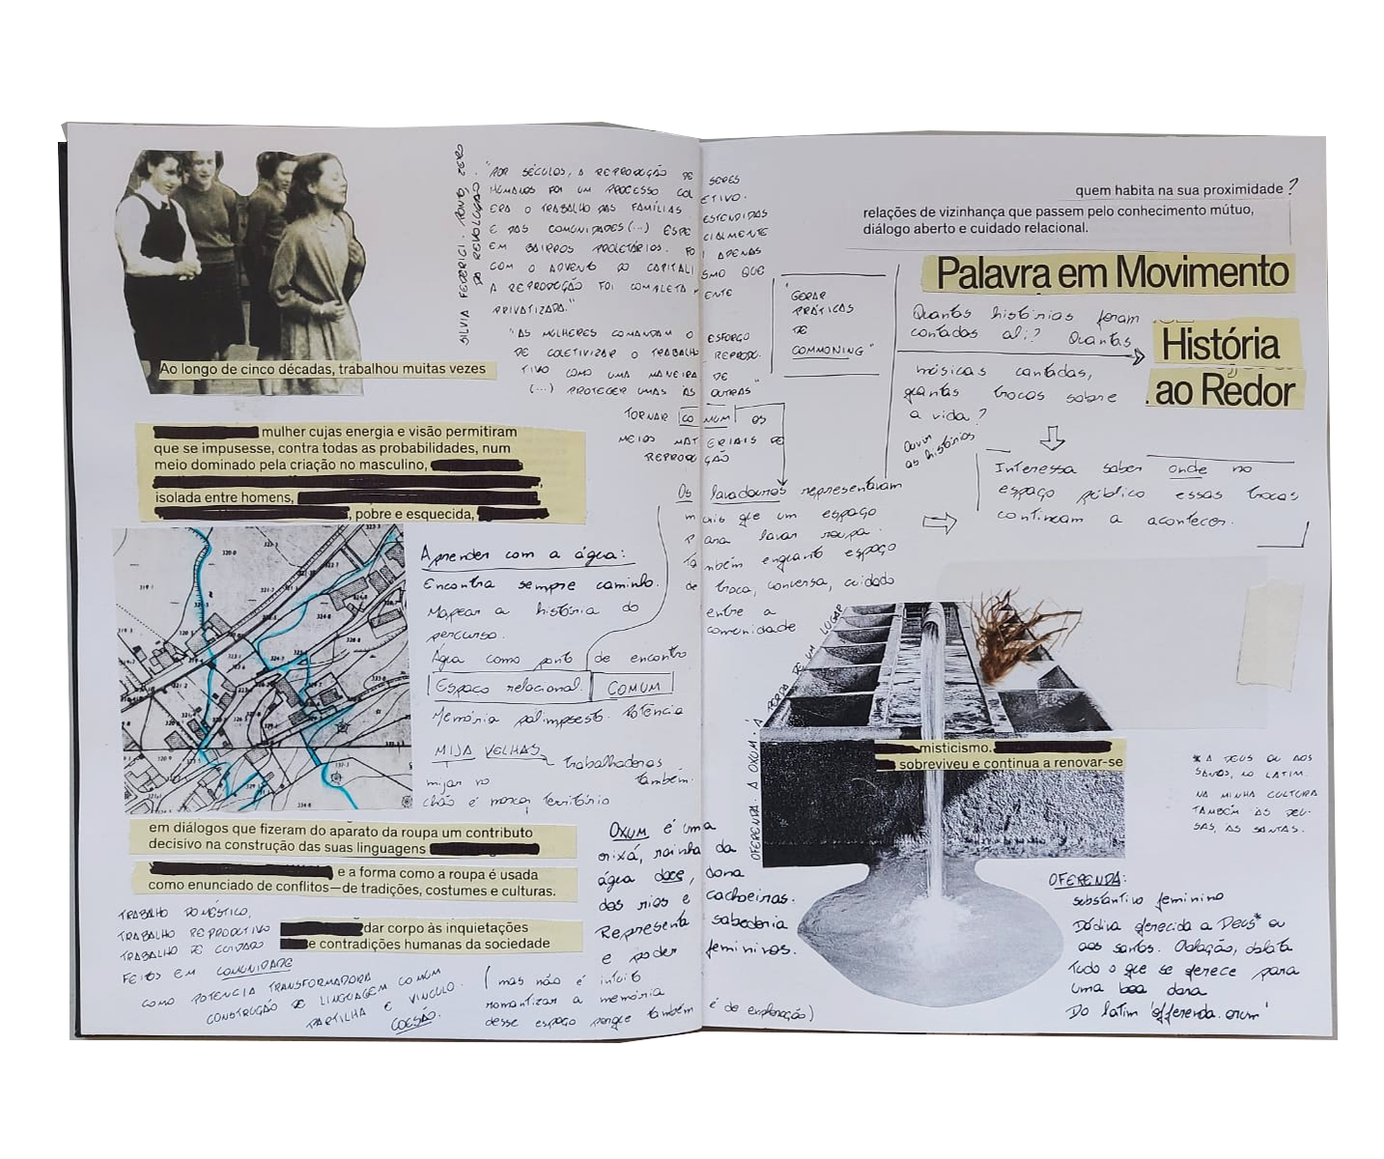 SILVIA FEDERICI. PONTO ZERO
DA REVOLUÇÃO
"POR SÉCULOS, A REPRODUÇÃO DE SERES
HUMANOS FOI UM PROCESSO COLETIVO.
ERA O TRABALHO DAS FAMÍLIAS ESTENDIDAS
E DAS COMUNIDADES (...) ESPECIALMENTE
EM BAIRROS PROLETÁRIOS. FOI APENAS
COM O ADVENTO DO CAPITALISMO QUE
A REPRODUÇÃO FOI COMPLETAMENTE
PRIVATIZADA."
"AS MULHERES COMANDAM O ESFORÇO
DE COLETIVIZAR O TRABALHO REPRODU-
TIVO COMO UMA MANEIRA DE
(...) PROTEGER UMAS ÀS OUTRAS"
TORNAR COMUM OS
MEIOS MATERIAIS DE
REPRODUÇÃO
Ao longo de cinco décadas, trabalhou muitas vezes
mulher cujas energia e visão permitiram
que se impusesse, contra todas as probabilidades, num
meio dominado pela criação no masculino,
isolada entre homens,
, pobre e esquecida,
Aprender com a água:
Encontra sempre caminho.
Mapear a história do
percurso.
Água como ponto de encontro
Espaço relacional. COMUM
Memória palimpsesto. Potência
MIJA VELHAS
Trabalhadoras
mijar no também.
chão é marcar território
em diálogos que fizeram do aparato da roupa um contributo
decisivo na construção das suas linguagens
e a forma como a roupa é usada
como enunciado de conflitos—de tradições, costumes e culturas.
dar corpo às inquietações
e contradições humanas da sociedade
TRABALHO DOMÉSTICO,
TRABALHO REPRODUTIVO
TRABALHO DE CUIDADO
FEITOS EM COMUNIDADE
COMO POTÊNCIA TRANSFORMADORA COMUM
CONSTRUÇÃO DE LINGUAGEM COMUM
PARTILHA E VÍNCULO.
COESÃO.
Oxum é uma
orixá, rainha da
água doce, dona
dos rios e cachoeiras.
Representa sabedoria
e poder femininos.
(mas não é intuito
romantizar a memória
desse espaço porque também é de exploração)
quem habita na sua proximidade?
relações de vizinhança que passem pelo conhecimento mútuo,
diálogo aberto e cuidado relacional.
Palavra em Movimento
"GERAR
PRÁTICAS
DE
COMMONING"
Quantas histórias foram
contadas ali? Quantas
músicas cantadas,
quantas trocas sobre
a vida?
História
ao Redor
ouvir
as histórias
Interessa saber onde no
espaço público essas trocas
continuam a acontecer.
Os lavadouros representavam
mais que um espaço
para lavar roupa.
Também enquanto espaço
de troca, conversa, cuidado
entre a
comunidade
OFERENDA A OXUM. A PODA DE UM LUGAR
misticismo.
sobreviveu e continua a renovar-se
* A DEUS OU AOS
SANTOS, NO LATIM.
NA MINHA CULTURA
TAMBÉM ÀS DEU-
SAS, ÀS SANTAS.
OFERENDA:
substantivo feminino
Dádiva oferecida a Deus* ou
aos santos. Oblação, oblata
Tudo o que se oferece para
uma boa
Do latim 'offerenda.orum'